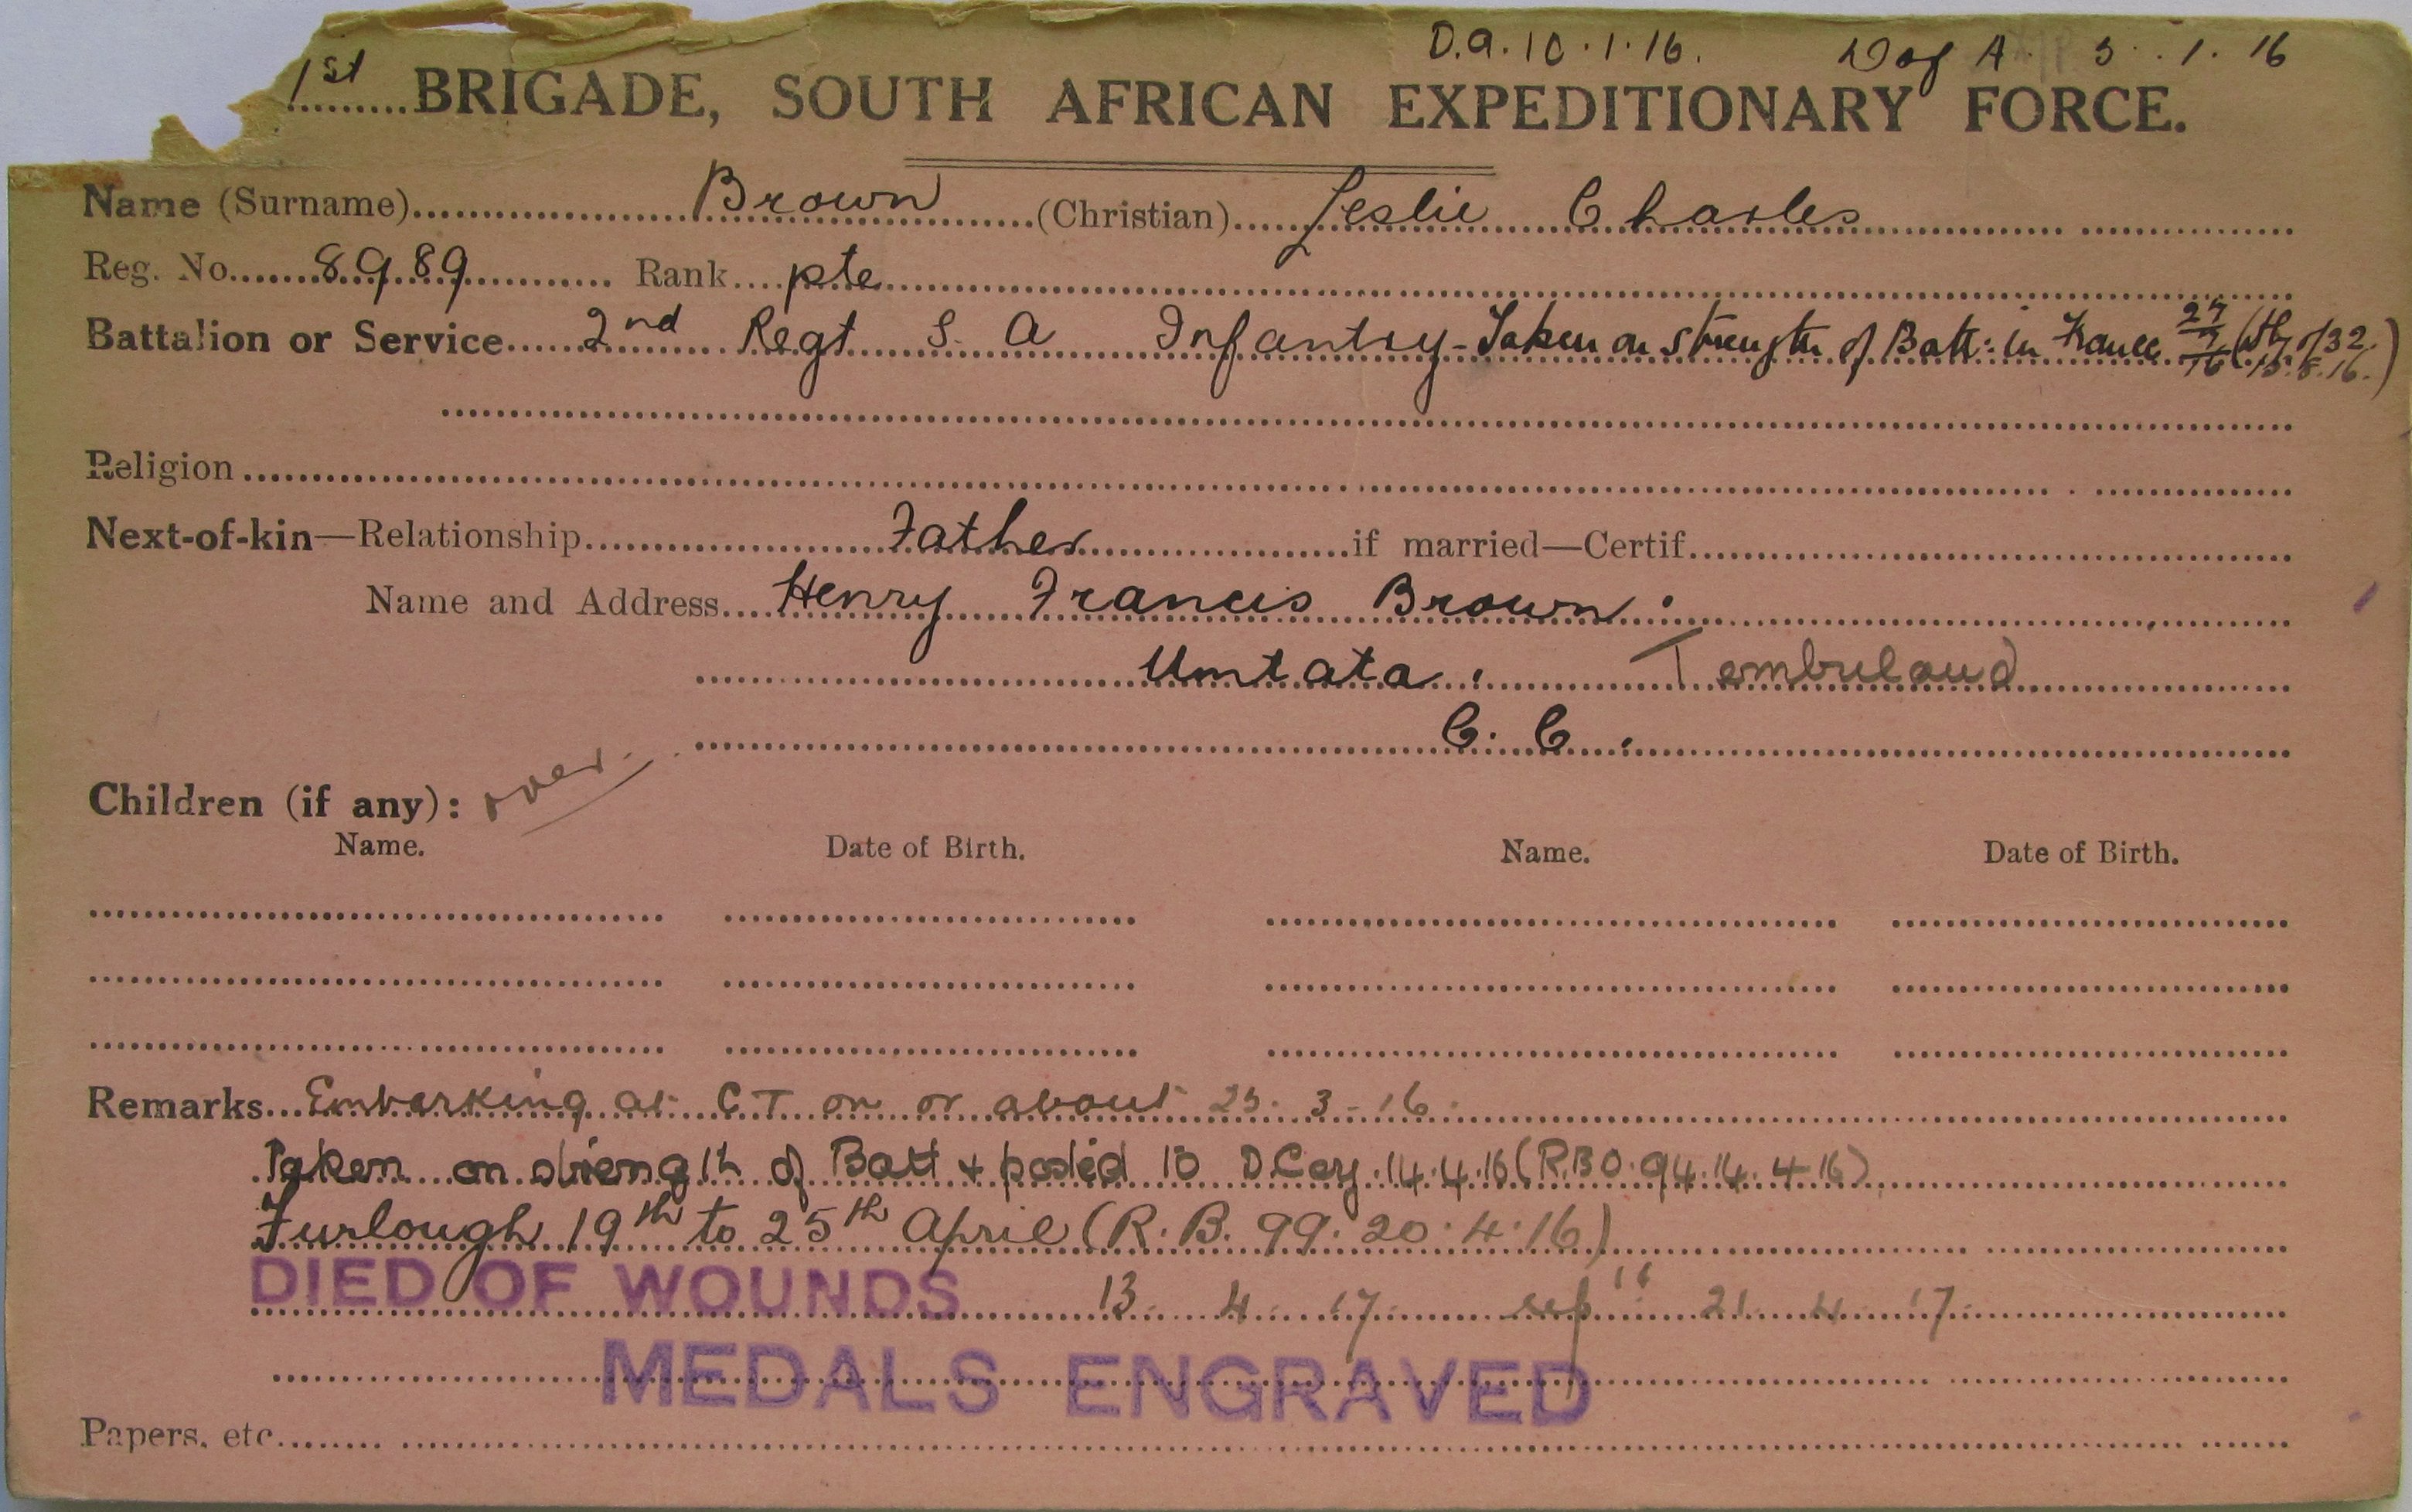 D.A. 10.1.16. D of A 3.1.16
1st BRIGADE, SOUTH AFRICAN EXPEDITIONARY FORCE.
Name (Surname) Brown (Christian) Leslie Charles
Reg. No. 8989 Rank pte
Battalion or Service 2nd Regt S. A Infantry - Taken on strength of Batt: in France 27/7/16 ( /32. 15.8.16.)
Religion
Next-of-kin—Relationship Father if married—Certif.
Name and Address Henry Francis Brown.
Umtata, Tembuland
C. C.
over.
Children (if any):
Name. Date of Birth. Name. Date of Birth.
Remarks Embarking at CT on or about 25.3-16.
Taken on strength of Batt + posted to D Coy. 14.4.16 (R.B.O. 94. 14.4.16)
Furlough 19th to 25th April (R.B. 99. 20.4.16)
DIED OF WOUNDS 13 4 17 rep 21 4 17
MEDALS ENGRAVED
Papers, etc.